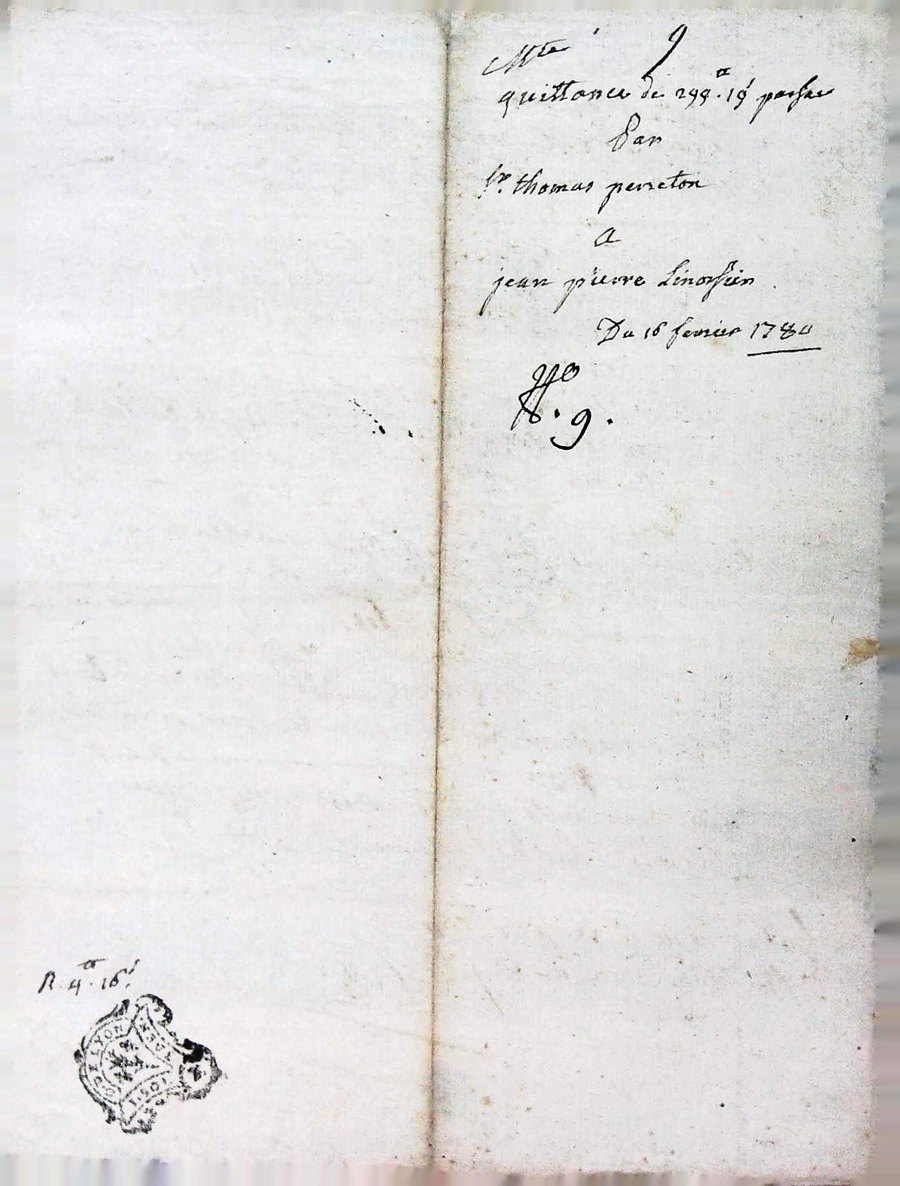 9
quittance de 299tt 19s passée
Par
Sr. thomas perreton
a
jean pierre Linossier
Du 16 fevrier 1780
No. 9.
R. 4tt. 16s
LYON